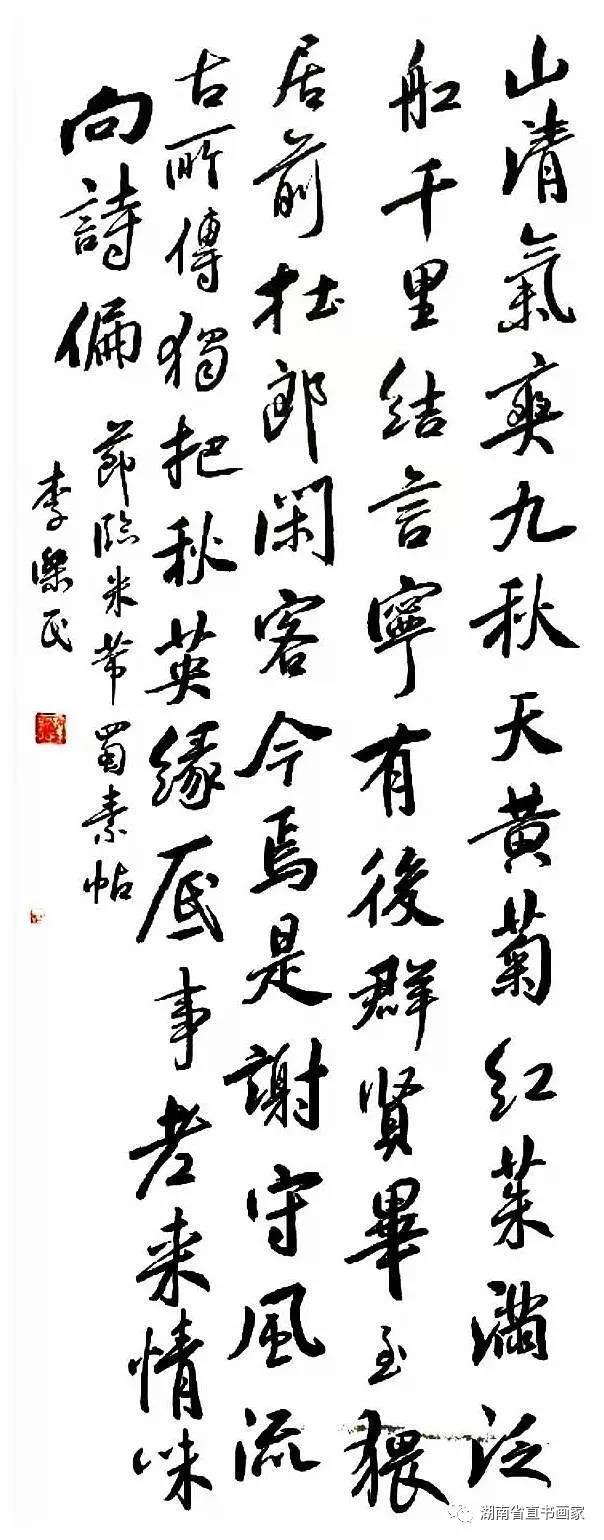 山清氣爽九秋天黄菊紅茱滿泛
舡千里结言寧有後群賢畢至猥
居前杜郎閑客今焉是謝守風流
古所傳獨把秋英緣底事老来情味
向詩偏
節臨米芾蜀素帖
李樂民
湖南省直书画家